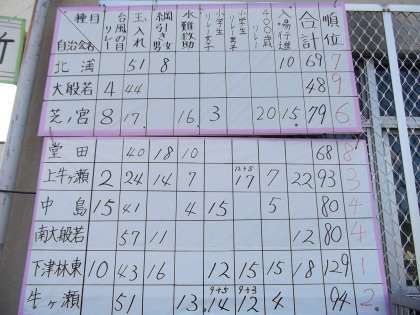 種目 自治会名 台風の目リレー 玉入れ 綱引き 男女 水難救助 小学生リレー女子 小学生リレー男子 リレー 入場行進 合計 順位
北溝 51 8 10 69 7
大般若 4 44 48 9
芝ノ宮 8 17. 16. 3 20 15. 79 6
堂田 40 18 10 68 8
上牛ヶ瀬 2 24 14 7 12+5 17 7 22 93 3
中島 15 41 4 15 5 80 4
南大般若 57 11 12 80 4
下津林東 10 43 16 12 15 15 18 129 1
牛ヶ瀬 51 13. 9+5 14 9+3 12 4 94 2
所